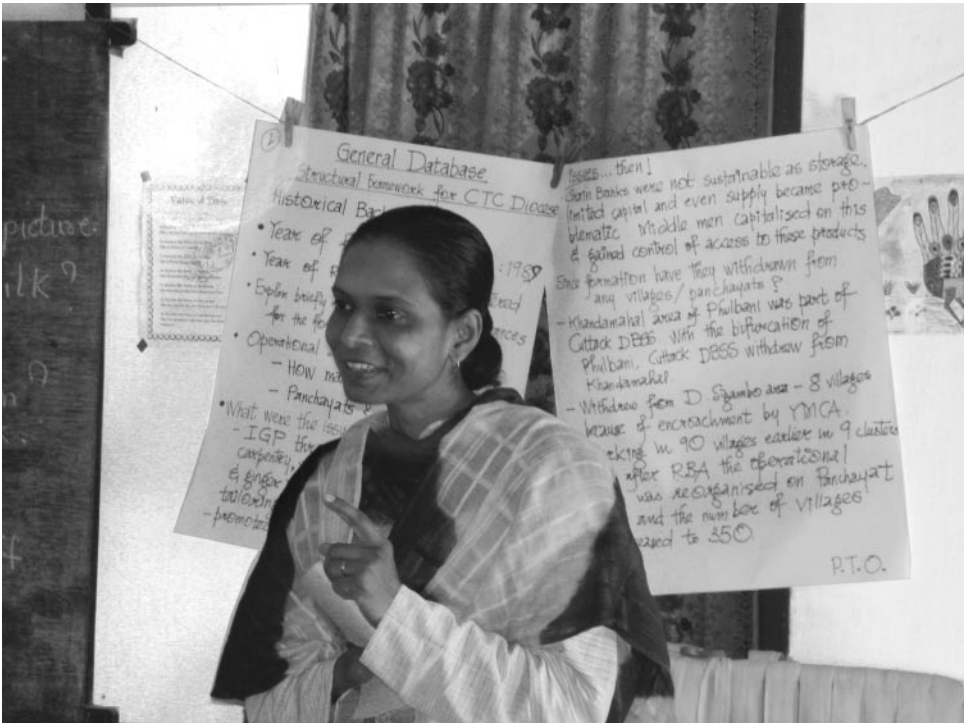 picture.
ilk?
Value of Time
General Database
Structural Framework for CTC Diocese
Historical Bac
• Year of
• Year of R : 1989
• Explain briefly
for the fo ances
• Operational
- How ma
- Panchayats &
• What were the issu
- IGP thr
carpentry,
& ginger
tailorin
- promot
Issues... then!
Grain Banks were not sustainable as storage,
limited capital and even supply became pro-
blematic. Middle men capitalised on this
& gained control of access to these products
Since formation have they withdrawn from
any villages/panchayats?
- Khandamahal area of Phulbani was part of
Cuttack DBSS. With the bifurcation of
Phulbani, Cuttack DBSS withdrew from
Khandamahal.
- Withdrew from D. area - 8 villages
because of encroachment by YMCA.
rking in 90 villages earlier in 9 clusters
after RBA the operational
was reorganised on Panchayat
and the number of villages
eased to 350
P.T.O.